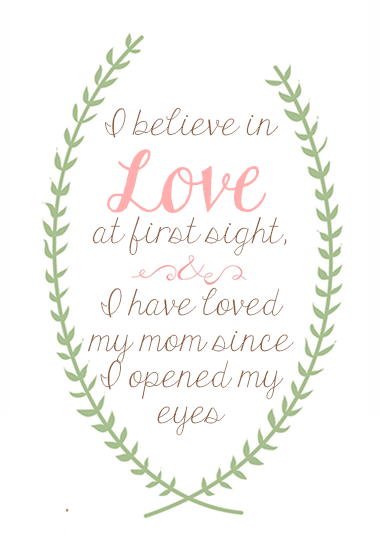 I believe in
Love
at first sight,
&
I have loved
my mom since
I opened my
eyes